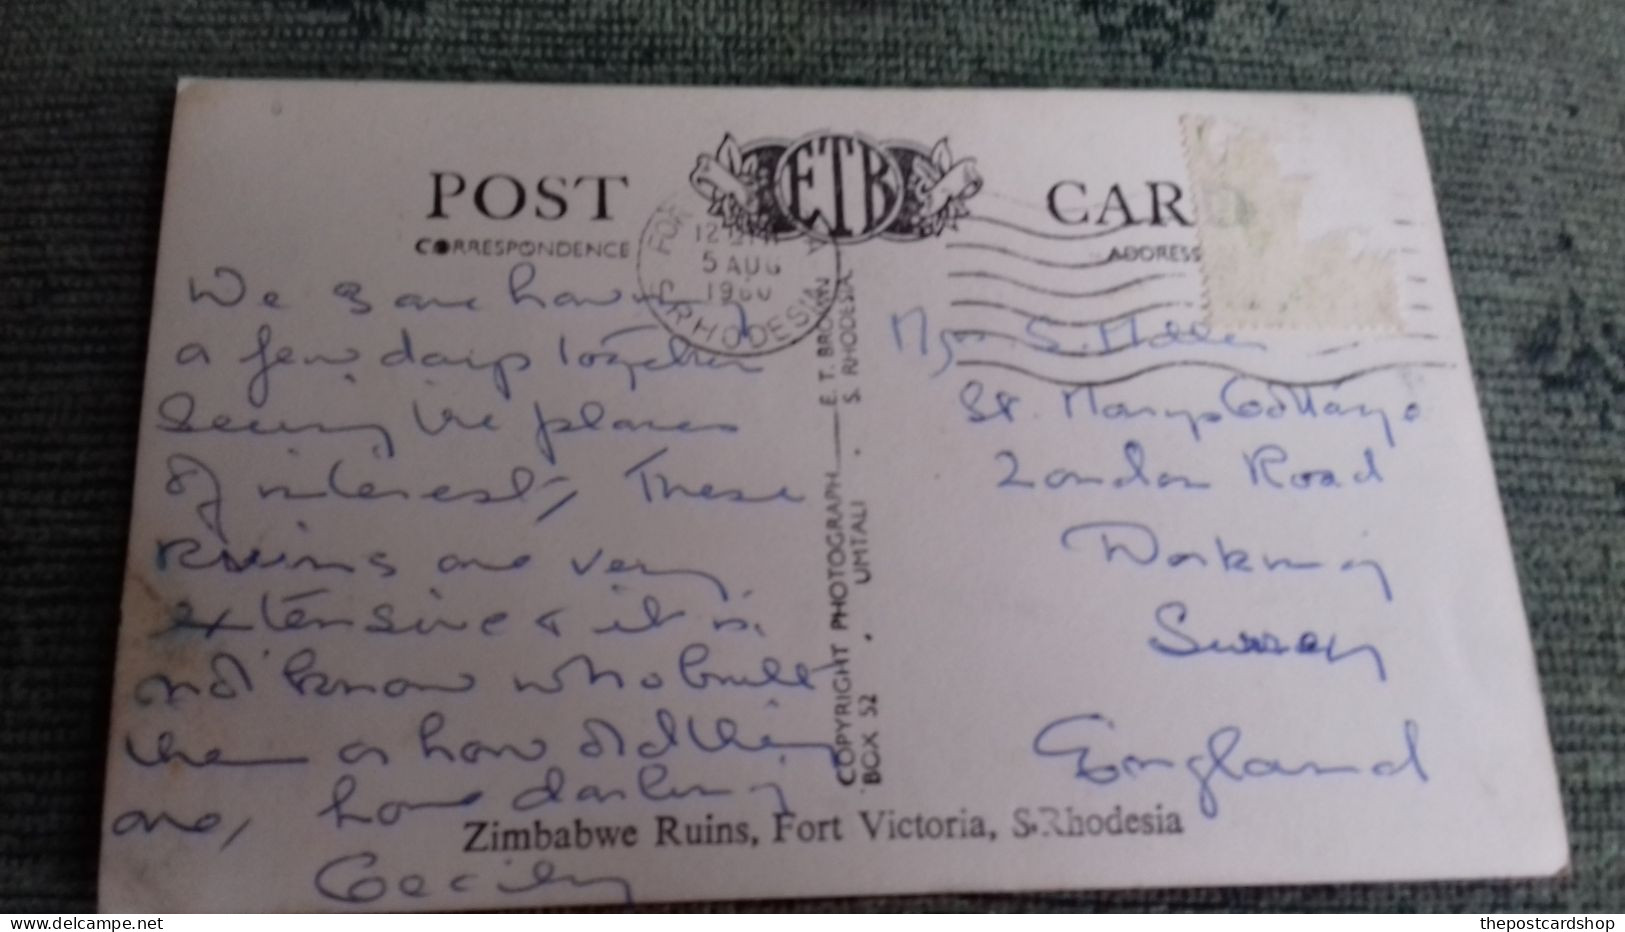 POST CARD
ETB
CORRESPONDENCE
ADDRESS
12
5 AUG
1960
S. RHODESIA
We are having
a few days together
seeing the places
of interest, These
Ruins are very
extensive & it is
not know who built
them or how old they
are, love darling
Cecily
COPYRIGHT PHOTOGRAPH — E. T. BROWN
BOX 52 , UMTALI . S. RHODESIA
Mrs S.
St. Marys Cottage
London Road
Dorking
Surrey
England
Zimbabwe Ruins, Fort Victoria, S.Rhodesia
thepostcardshop
www.delcampe.net